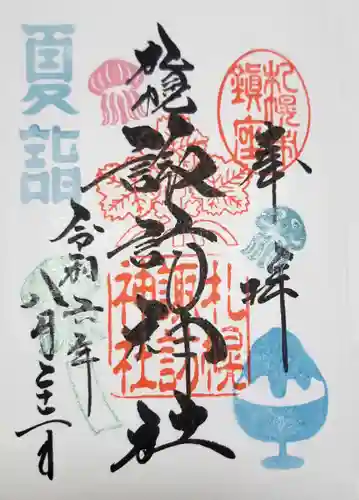 奉拝
札幌市
鎮座
札幌
諏訪
神社
札幌
諏訪神社
夏詣
令和六年
八月二十二日